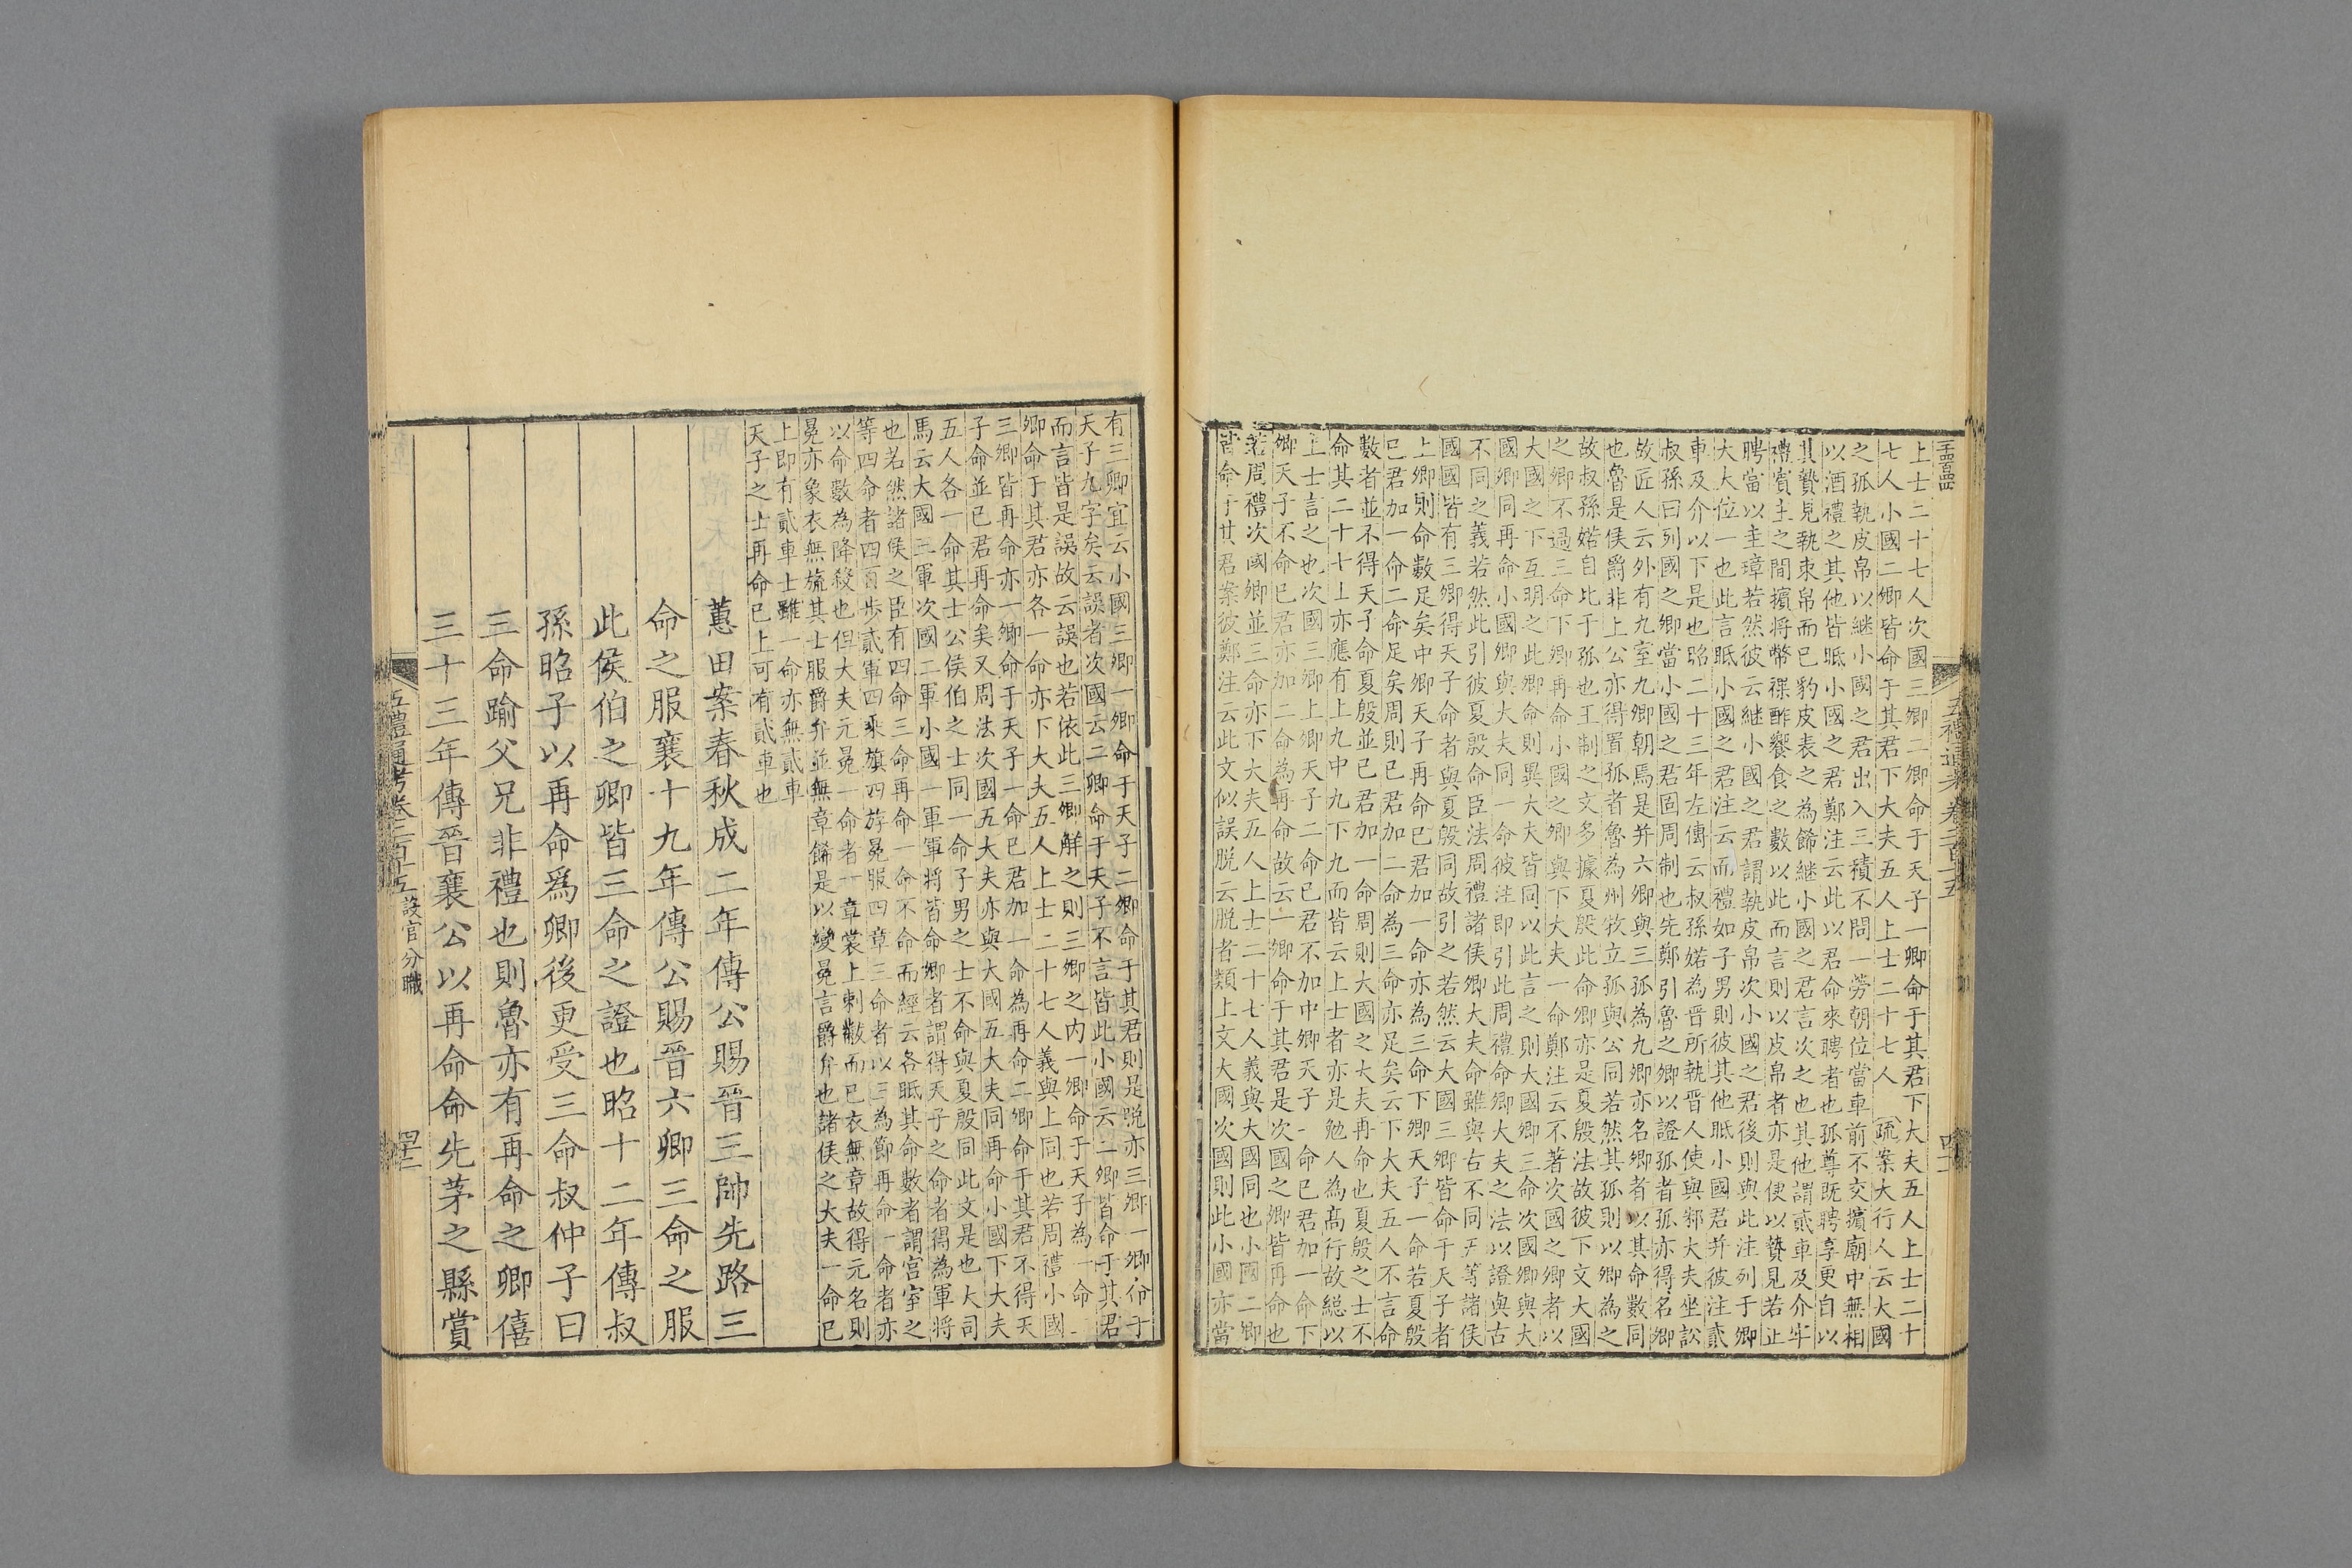 上士二十七人次國三卿二卿命于天子一卿命于其君下大夫五人上士二十
七人小國二卿皆命于其君下大夫五人上士二十七人疏案大行人云大國
之孤執皮帛以繼小國之君出入三積不問一勞朝位當車前不交擯廟中無相
以酒禮之其他皆眂小國之君鄭注云此以君命來聘者也孤尊既聘享更自以
其贄見執束帛而已豹皮表之為飾繼小國之君言次之也其他謂貳車及介牢
禮賓主之間擯將幣祼酢饗食之數以此而言則以皮帛者亦是使以贄見若正
聘當以圭璋若然彼云繼小國之君謂執皮帛次小國之君後則與此注列于卿
大夫位一也此言眂小國之君注云而禮如子男則彼其他眂小國君并彼注貳
車及介以下是也昭二十三年左傳云叔孫婼為晉所執晉人使與邾大夫坐訟
叔孫曰列國之卿當小國之君固周制也先鄭引魯之卿以證孤者孤亦得名卿
故匠人云外有九室九卿朝焉是并六卿與三孤為九卿亦名卿者以其命數同
也魯是侯爵非上公亦得置孤者魯為州牧立孤與公同若然其孤則以卿為之
故叔孫婼自比于孤也王制之文多據夏殷此命卿亦是夏殷法故彼下文大國
之卿不過三命下卿再命小國之卿與下大夫一命鄭注云不著次國之卿者以
大國之下互明之此卿命則異大夫皆同以此言之則大國卿三命次國卿與大
國下卿同再命小國卿與大夫同一命彼注即引此周禮命卿大夫之法以證與古
不同之義若然此引彼夏殷命臣法周禮諸侯卿大夫命雖與古不同五等諸侯
國國皆有三卿得天子命者與夏殷同故引之若然云大國三卿皆命于天子者
上卿則命數足矣中卿天子再命已君加一命亦為三命下卿天子一命若夏殷
已君加一命二命足矣周則已君加二命為三命亦足矣云下大夫五人不言命
數者並不得天子命夏殷並已君加一命周則大國之大夫再命也夏殷之士不
命其二十七士亦應有上九中九下九而皆云上士者亦是勉人為高行故總以
上士言之也次國三卿上卿天子二命已君不加中卿天子一命已君加一命下
卿天子不命已君亦加二命為再命故云一卿命于其君是次國之卿皆再命也
若周禮次國卿並三命亦下大夫五人上士二十七人義與大國同也小國二卿
皆命于其君案彼鄭注云此文似誤脫云脫者類上文大國次國則此小國亦當
五禮通考卷二百十五
有三卿宜云小國三卿一卿命于天子二卿命于其君則是脫亦三卿一卿命于
天子九字矣云誤者次國云二卿命于天子不言皆此小國云二卿皆命于其君
而言皆是誤故云誤也若依此三卿解之則三卿之內一卿命于天子為一命二
卿命于其君亦各一命亦下大夫五人上士二十七人義與上同也若周禮小國
三卿皆再命亦一卿命于天子一命已君加一命為再命二卿命于其君不得天
子命並已君再命矣又周法次國五大夫亦與大國五大夫同再命小國下大夫
五人各一命其士公侯伯之士同一命子男之士不命與夏殷同此文是也大司
馬云大國三軍次國二軍小國一軍軍將皆命卿者謂得天子之命者得為軍將
也若然諸侯之臣有四命三命再命一命不命而經云各眂其命數者謂宮室之
等四命者四百步貳車四乘旗四斿冕服四章三命者以三為節再命一命者亦
以命數為降殺也但大夫元冕一命者一章裳上刺黻而已衣無章故得元名則
冕亦象衣無旒其士服爵弁並無章飾是以變冕言爵弁也諸侯之大夫一命已
上即有貳車士雖一命亦無貳車
天子之士再命已上可有貳車也
蕙田案春秋成二年傳公賜晉三帥先路三
命之服襄十九年傳公賜晉六卿三命之服
此侯伯之卿皆三命之證也昭十二年傳叔
孫昭子以再命爲卿後更受三命叔仲子曰
三命踰父兄非禮也則魯亦有再命之卿僖
三十三年傳晉襄公以再命命先茅之縣賞
五禮通考卷二百十五 設官分職